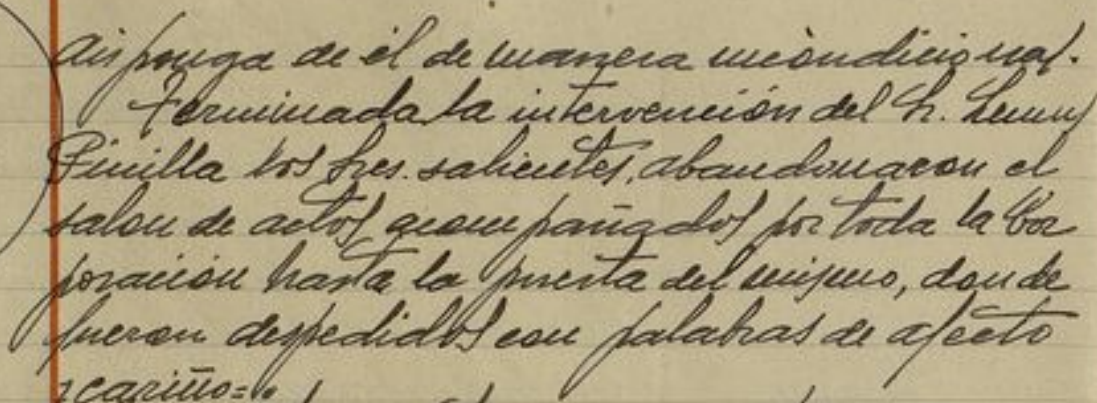 disponga de él de manera incondicional.
Terminada la intervención del Sr.
Pinilla los Sres. salientes, abandonaron el
salon de actos acompañados por toda la Cor
poración hasta la puerta del mismo, donde
fueron despedidos con palabras de afecto
y cariño=